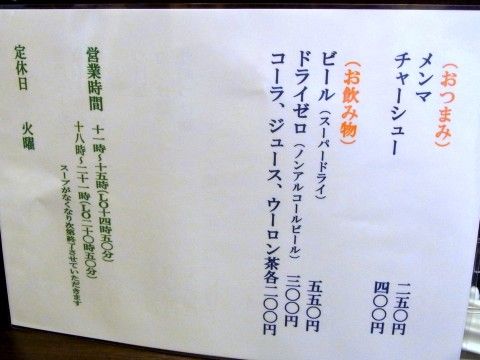 (おつまみ)
メンマ 二五〇円
チャーシュー 四〇〇円
(お飲み物)
ビール(スーパードライ) 五五〇円
ドライゼロ(ノンアルコールビール) 三〇〇円
コーラ、ジュース、ウーロン茶各二〇〇円
営業時間 十一時〜十五時(LO十四時五〇分)
十八時〜二十一時(LO二十時五〇分)
スープがなくなり次第終了させていただきます
定休日 火曜